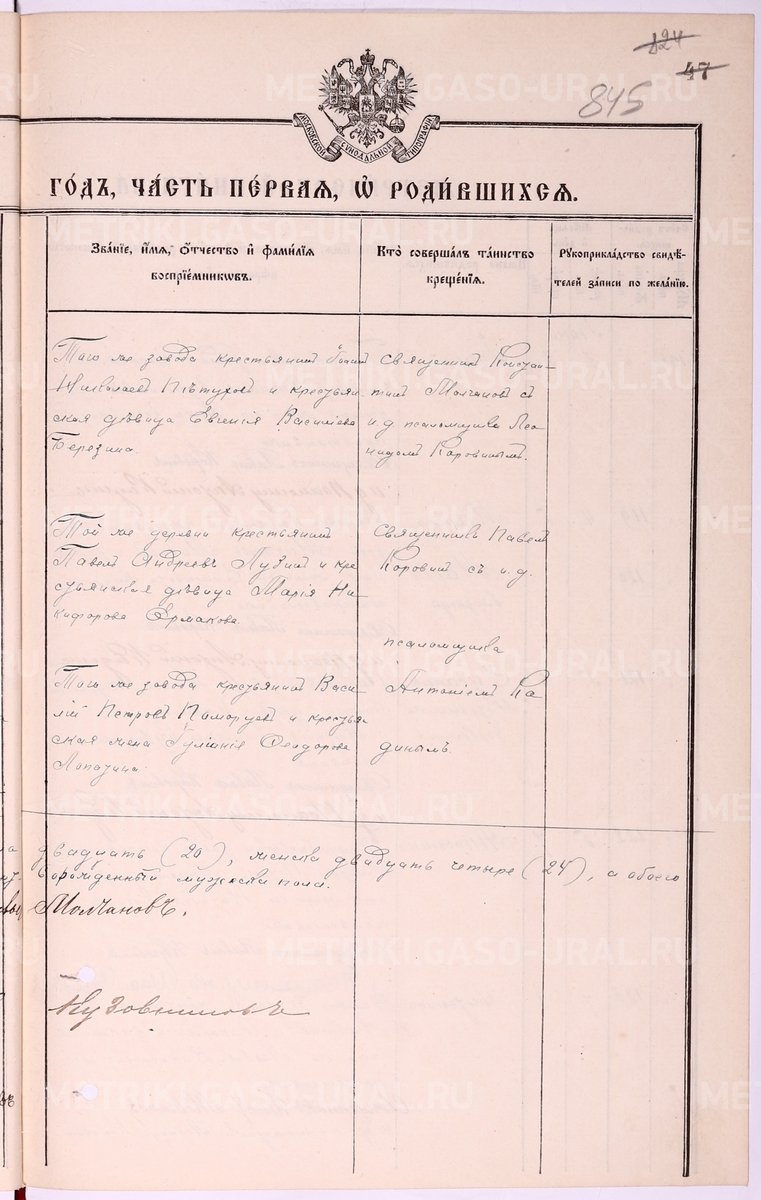 124
47
845
МОСКОВСКОЙ СѴНОДАЛЬНОЙ ТИПОГРАФІИ
ГО́ДЪ, ЧА́СТЬ ПЕ́РВАЯ, Ѡ҆ РОДИ́ВШИХСЯ.
Зва́ніе, и҆́мя, ѻ҆́тчество и҆ фами́лія
воспріе́мниковъ.
Кто̀ соверша́лъ та́инство
креще́нія.
Рукоприкла́дство свидѣ́-
телей за́писи по жела́нію.
Того же завода крестьянинъ Іоаннъ
Николаевъ Пѣтуховъ и крестьян
ская дѣвица Евгенія Василіева
Березина.
Священникъ Констан-
тинъ Молчановъ съ
и. д. псаломщика Лео-
нидомъ Коровинымъ.
Той же деревни крестьянинъ
Павелъ Андреевъ Лузинъ и кре
стьянская дѣвица Марія Ни-
кифорова Ермакова.
Священникъ Павелъ
Коровинъ съ и. д.
псаломщика
Того же завода крестьянинъ Васи-
лій Петровъ Поморцевъ и крестья-
ская жена Іуліанія Ѳеодорова
Лопатина.
Антоніемъ Ка
динымъ.
двадцать (20), женска двадцать четыре (24), а обоего
рожденный мужеска пола.
Молчановъ.
Кузовниковъ
METRIKI.GASO-URAL.RU